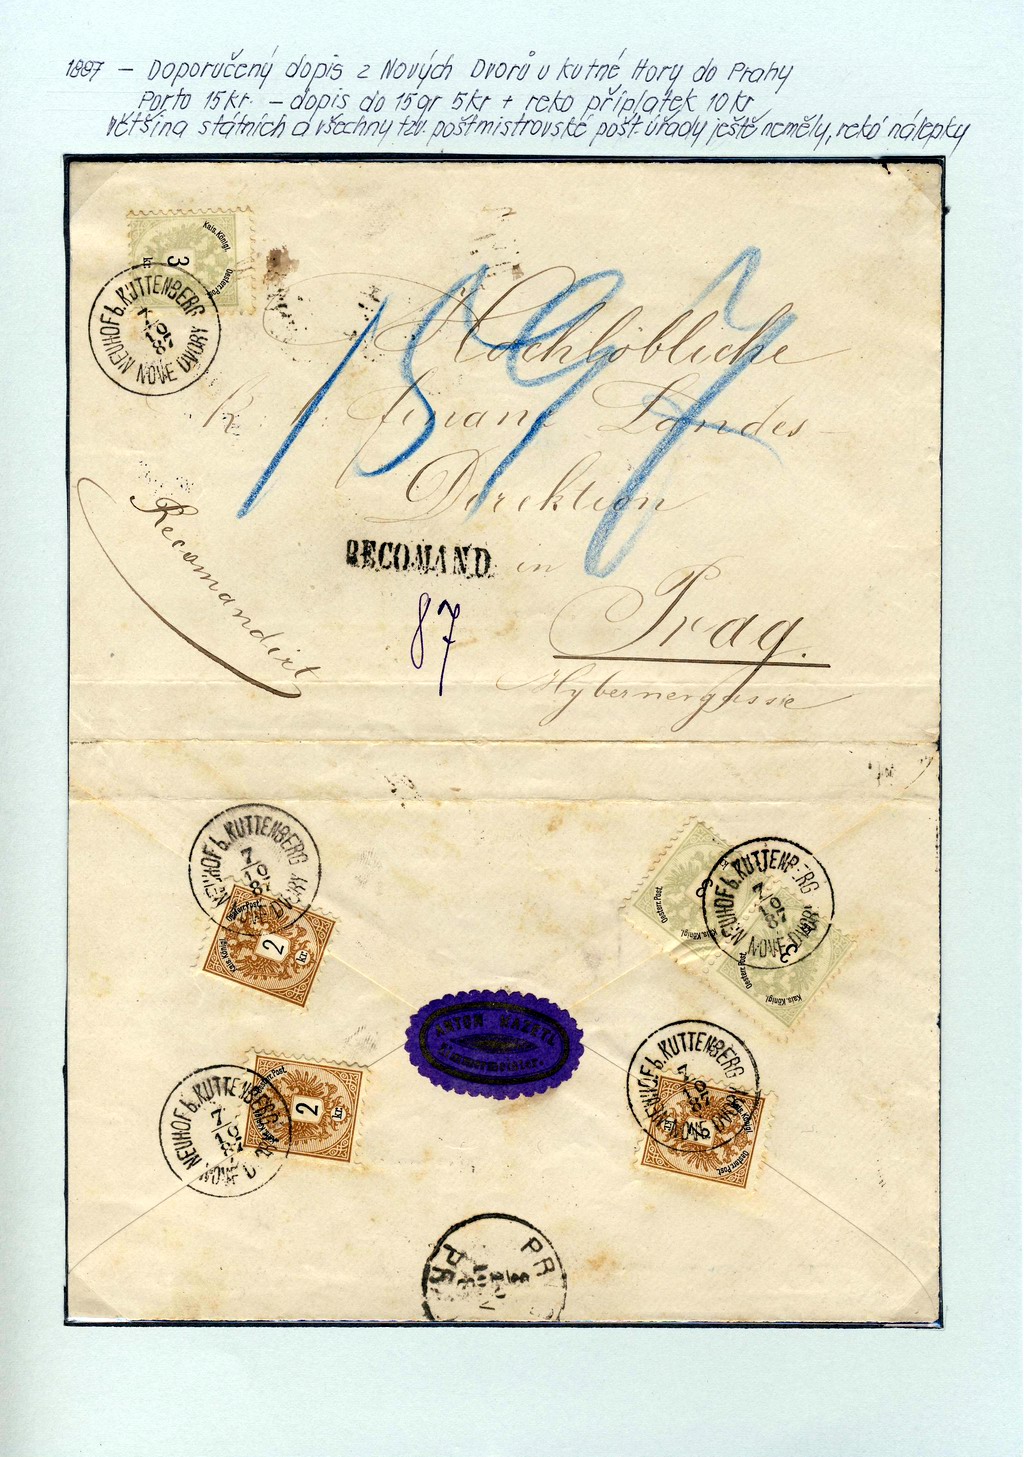 1887 – Doporučený dopis z Nových Dvorů u Kutné Hory do Prahy
Porto 15 kr. – dopis do 15 gr 5 kr + reko příplatek 10 kr
většina státních a všechny tzv. poštmistrovské pošt. úřady ještě neměly, reko nálepky
Kais. Königl. Oesterr. Post.
3 kr.
NEUHOF b. KUTTENBERG
7/10 87
NOVÉ DVORY
Hochlöbliche
K. k. Finanz Landes-
Direktion
in
Prag.
Hybernergasse
Recomandirt
RECOMAND.
87
NEUHOF b. KUTTENBERG
7/10 87
NOVÉ DVORY
Kais. Königl. Oesterr. Post.
2 kr.
NEUHOF b. KUTTENBERG
7/10 87
NOVÉ DVORY
Kais. Königl. Oesterr. Post.
3
Kais. Königl. Oesterr. Post.
3
ANTON
NEUHOF b. KUTTENBERG
7/10 87
NOVÉ D
Oesterr. Post.
2 kr.
NEUHOF b. KUTTENBERG
7/10 87
NOVÉ DVORY
Königl. Oesterr. Post.
kr.
PR
PR